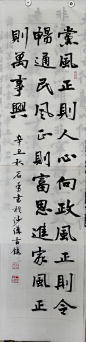 党風正則人心向政風正則令
暢通民風正則富思進家風正
則萬事興
辛丑秋石黃書於沽濤書館